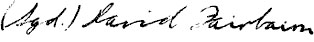 (Sgd.) David Fairbairn